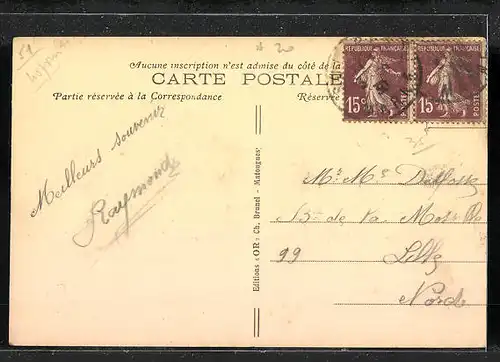 Aucune inscription n'est admise du côté de la
CARTE POSTALE
Partie réservée à la Correspondance
Réservé
RÉPUBLIQUE FRANÇAISE
15c
POSTES
RÉPUBLIQUE FRANÇAISE
15
POSTES
Meilleurs souvenirs
Raymonde
Editions «OR» Ch. Brunel - Matougues
Mr. Me
Bd de la
99
Lille
Nord